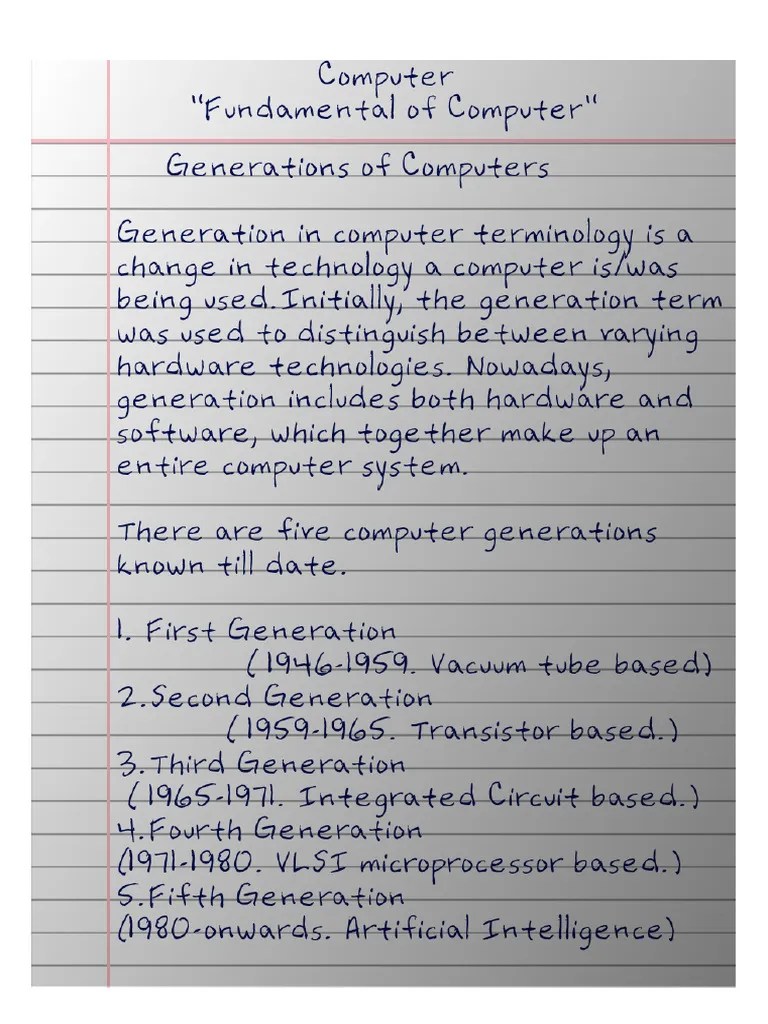 Computer
"Fundamental of Computer"
Generations of Computers
Generation in computer terminology is a
change in technology a computer is/was
being used. Initially, the generation term
was used to distinguish between varying
hardware technologies. Nowadays,
generation includes both hardware and
software, which together make up an
entire computer system.
There are five computer generations
known till date.
1. First Generation
(1946-1959. Vacuum tube based)
2. Second Generation
(1959-1965. Transistor based.)
3. Third Generation
(1965-1971. Integrated Circuit based.)
4. Fourth Generation
(1971-1980. VLSI microprocessor based.)
5. Fifth Generation
(1980-onwards. Artificial Intelligence)